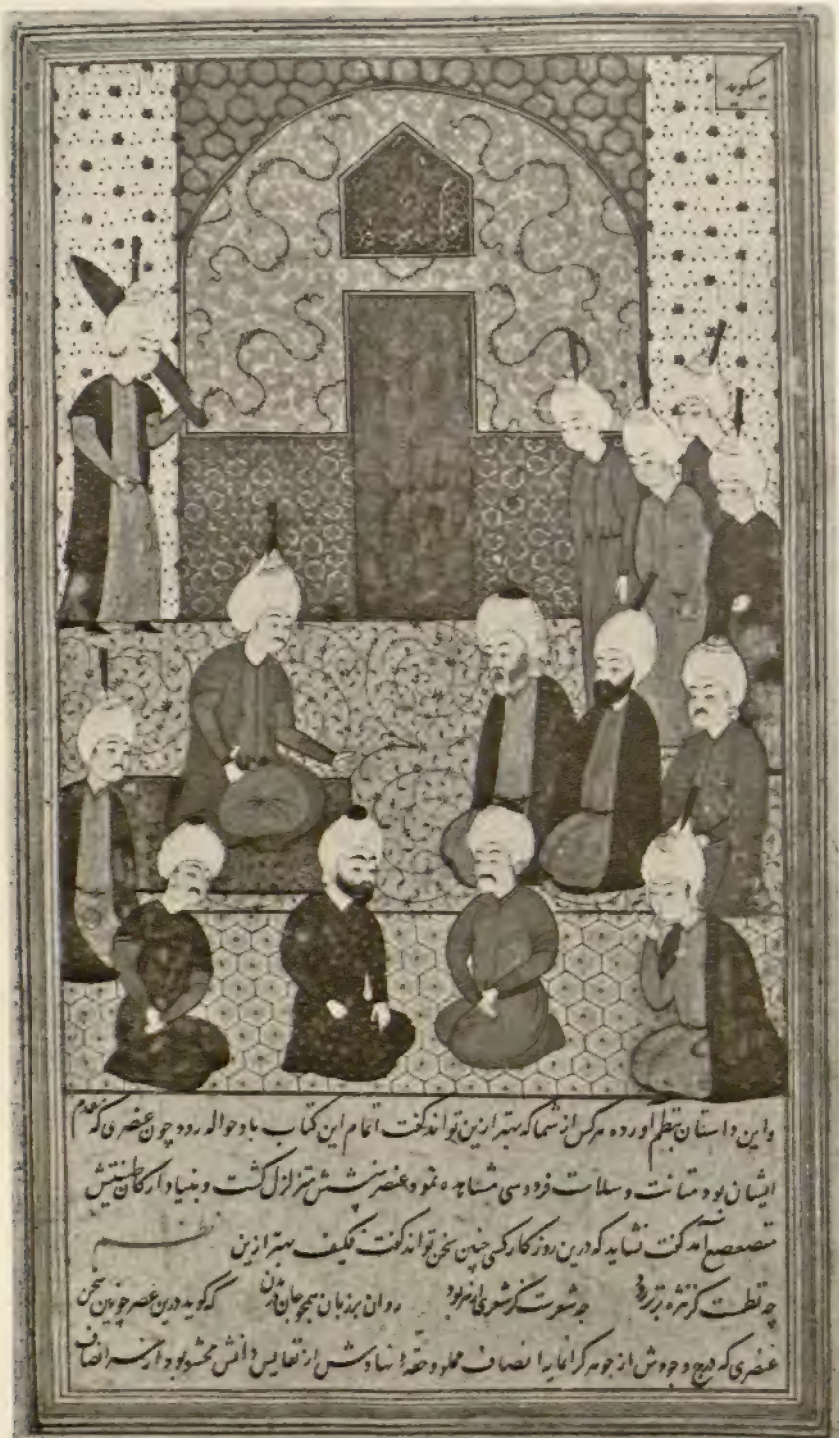 میگوید
و این داستان بنظم آورده هر کس از شما که بهتر ازین تواند گفت اتمام این کتاب باو حواله رود چون عنصری که مقدم
ایشان بود متانت و سلاست فردوسی مشاهده نمود عنصر متزلزل گشت و بنیاد ارکان
آمد گفت نشاید که درین روزگار کسی چنین سخن تواند گفت فکیف بهتر ازین نظم
چه نظمست کز نثره برتر بود چه شعرست کز شعری ازهر بود روان بر زبان همچو جان در بدن که گوید درین عصر چونین سخن
عنصری که درج وجودش از جوهر گرانمایه انصاف مملو و حقه از نفایس دانش محشو بود از سر انصاف